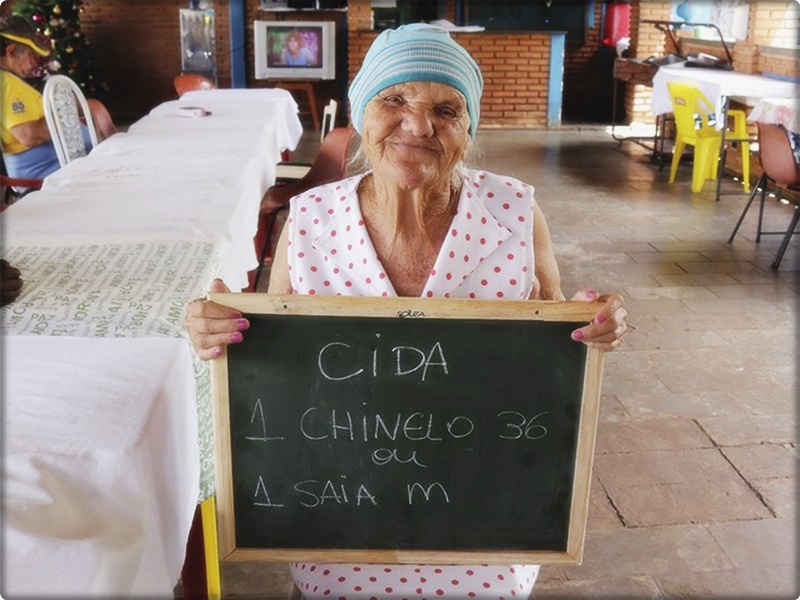 SOUZA
CiDA
1 CHiNELO 36
ou
1 SAiA M